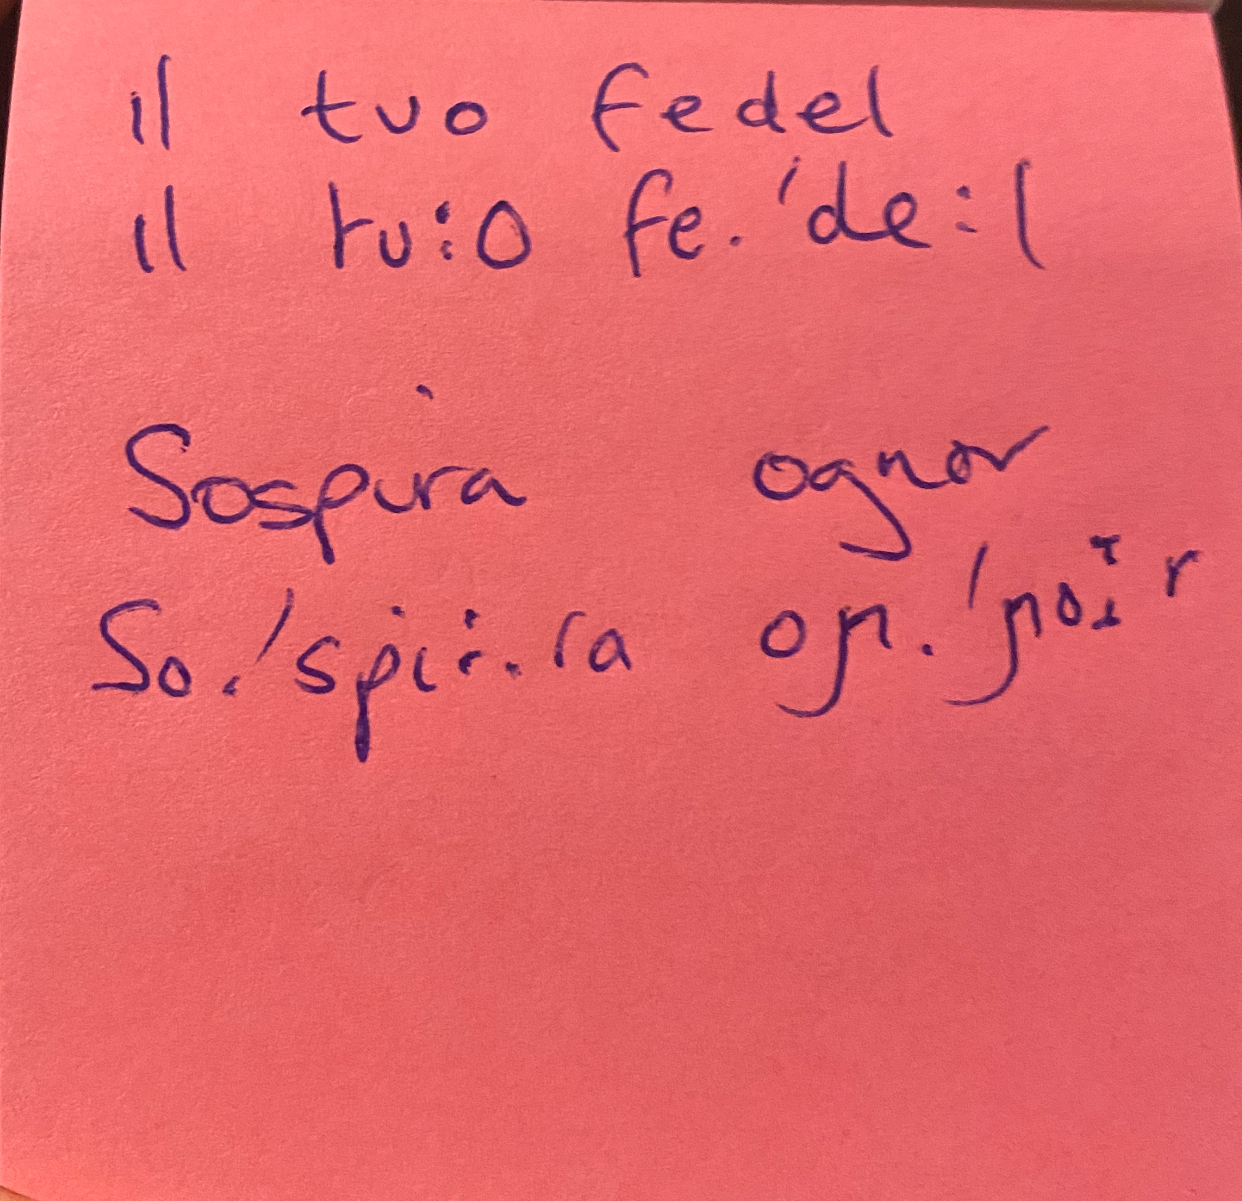 il tuo fedel
il tu:o fe.'de:l
Sospira ognor
So.'spi:.ra oɲ.'ɲo:r